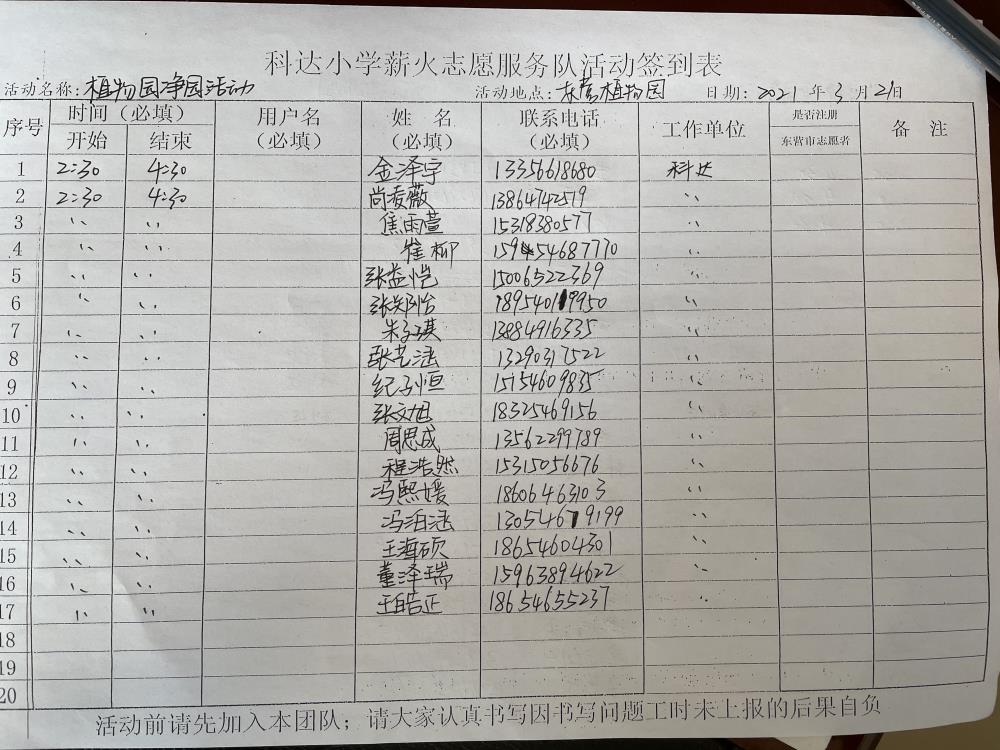 科达小学薪火志愿服务队活动签到表
活动名称:植物园净园活动 活动地点:东营植物园 日期:2021年3月21日
序号 时间(必填) 用户名(必填) 姓名(必填) 联系电话(必填) 工作单位 是否注册东营市志愿者 备注
开始 结束
1 2:30 4:30 金泽宇 13356618680 科达
2 2:30 4:30 尚麦薇 13864742519 〃
3 〃 〃 焦雨萱 15318380577 〃
4 〃 〃 崔柳 15954687770 〃
5 〃 〃 张益恺 15006522369 〃
6 〃 〃 张郑怡 18954019950 〃
7 〃 〃 朱子琪 13884916335 〃
8 〃 〃 张艺涵 13290317522 〃
9 〃 〃 纪子恒 15154609835 〃
10 〃 〃 张文旭 18325469156 〃
11 〃 〃 周思成 13562299789 〃
12 〃 〃 程浩然 15315056676 〃
13 〃 〃 冯熙媛 18606463103 〃
14 〃 〃 冯泊涵 13054679199 〃
15 〃 〃 王海硕 18654604301 〃
16 〃 〃 董泽瑞 15963894622 〃
17 〃 〃 王皓正 18654655237 〃
18
19
20
活动前请先加入本团队;请大家认真书写因书写问题工时未上报的后果自负